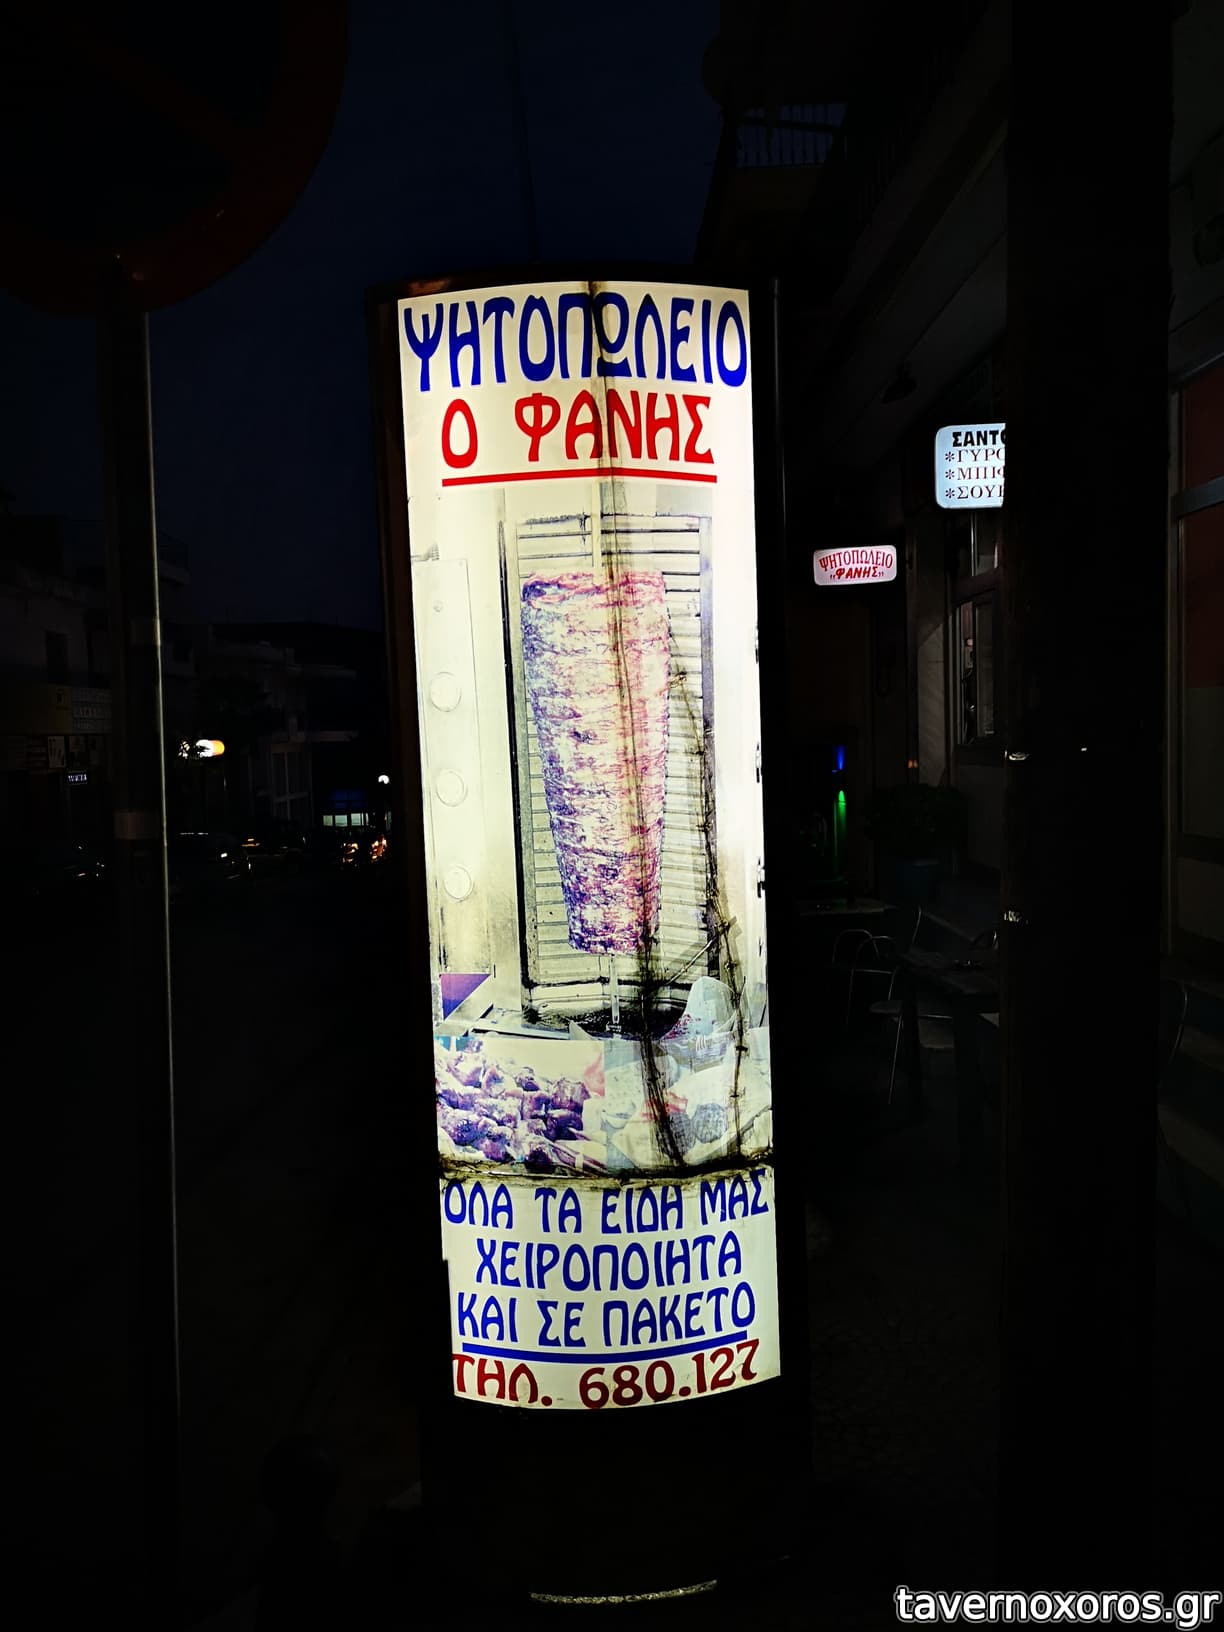 ΨΗΤΟΠΩΛΕΙΟ
Ο ΦΑΝΗΣ
ΟΛΑ ΤΑ ΕΙΔΗ ΜΑΣ
ΧΕΙΡΟΠΟΙΗΤΑ
ΚΑΙ ΣΕ ΠΑΚΕΤΟ
ΤΗΛ. 680.127
ΣΑΝΤΟ
*ΓΥΡΟ
*ΜΠΙΦ
*ΣΟΥΒ
ΨΗΤΟΠΩΛΕΙΟ
„ΦΑΝΗΣ„
tavernoxoros.gr